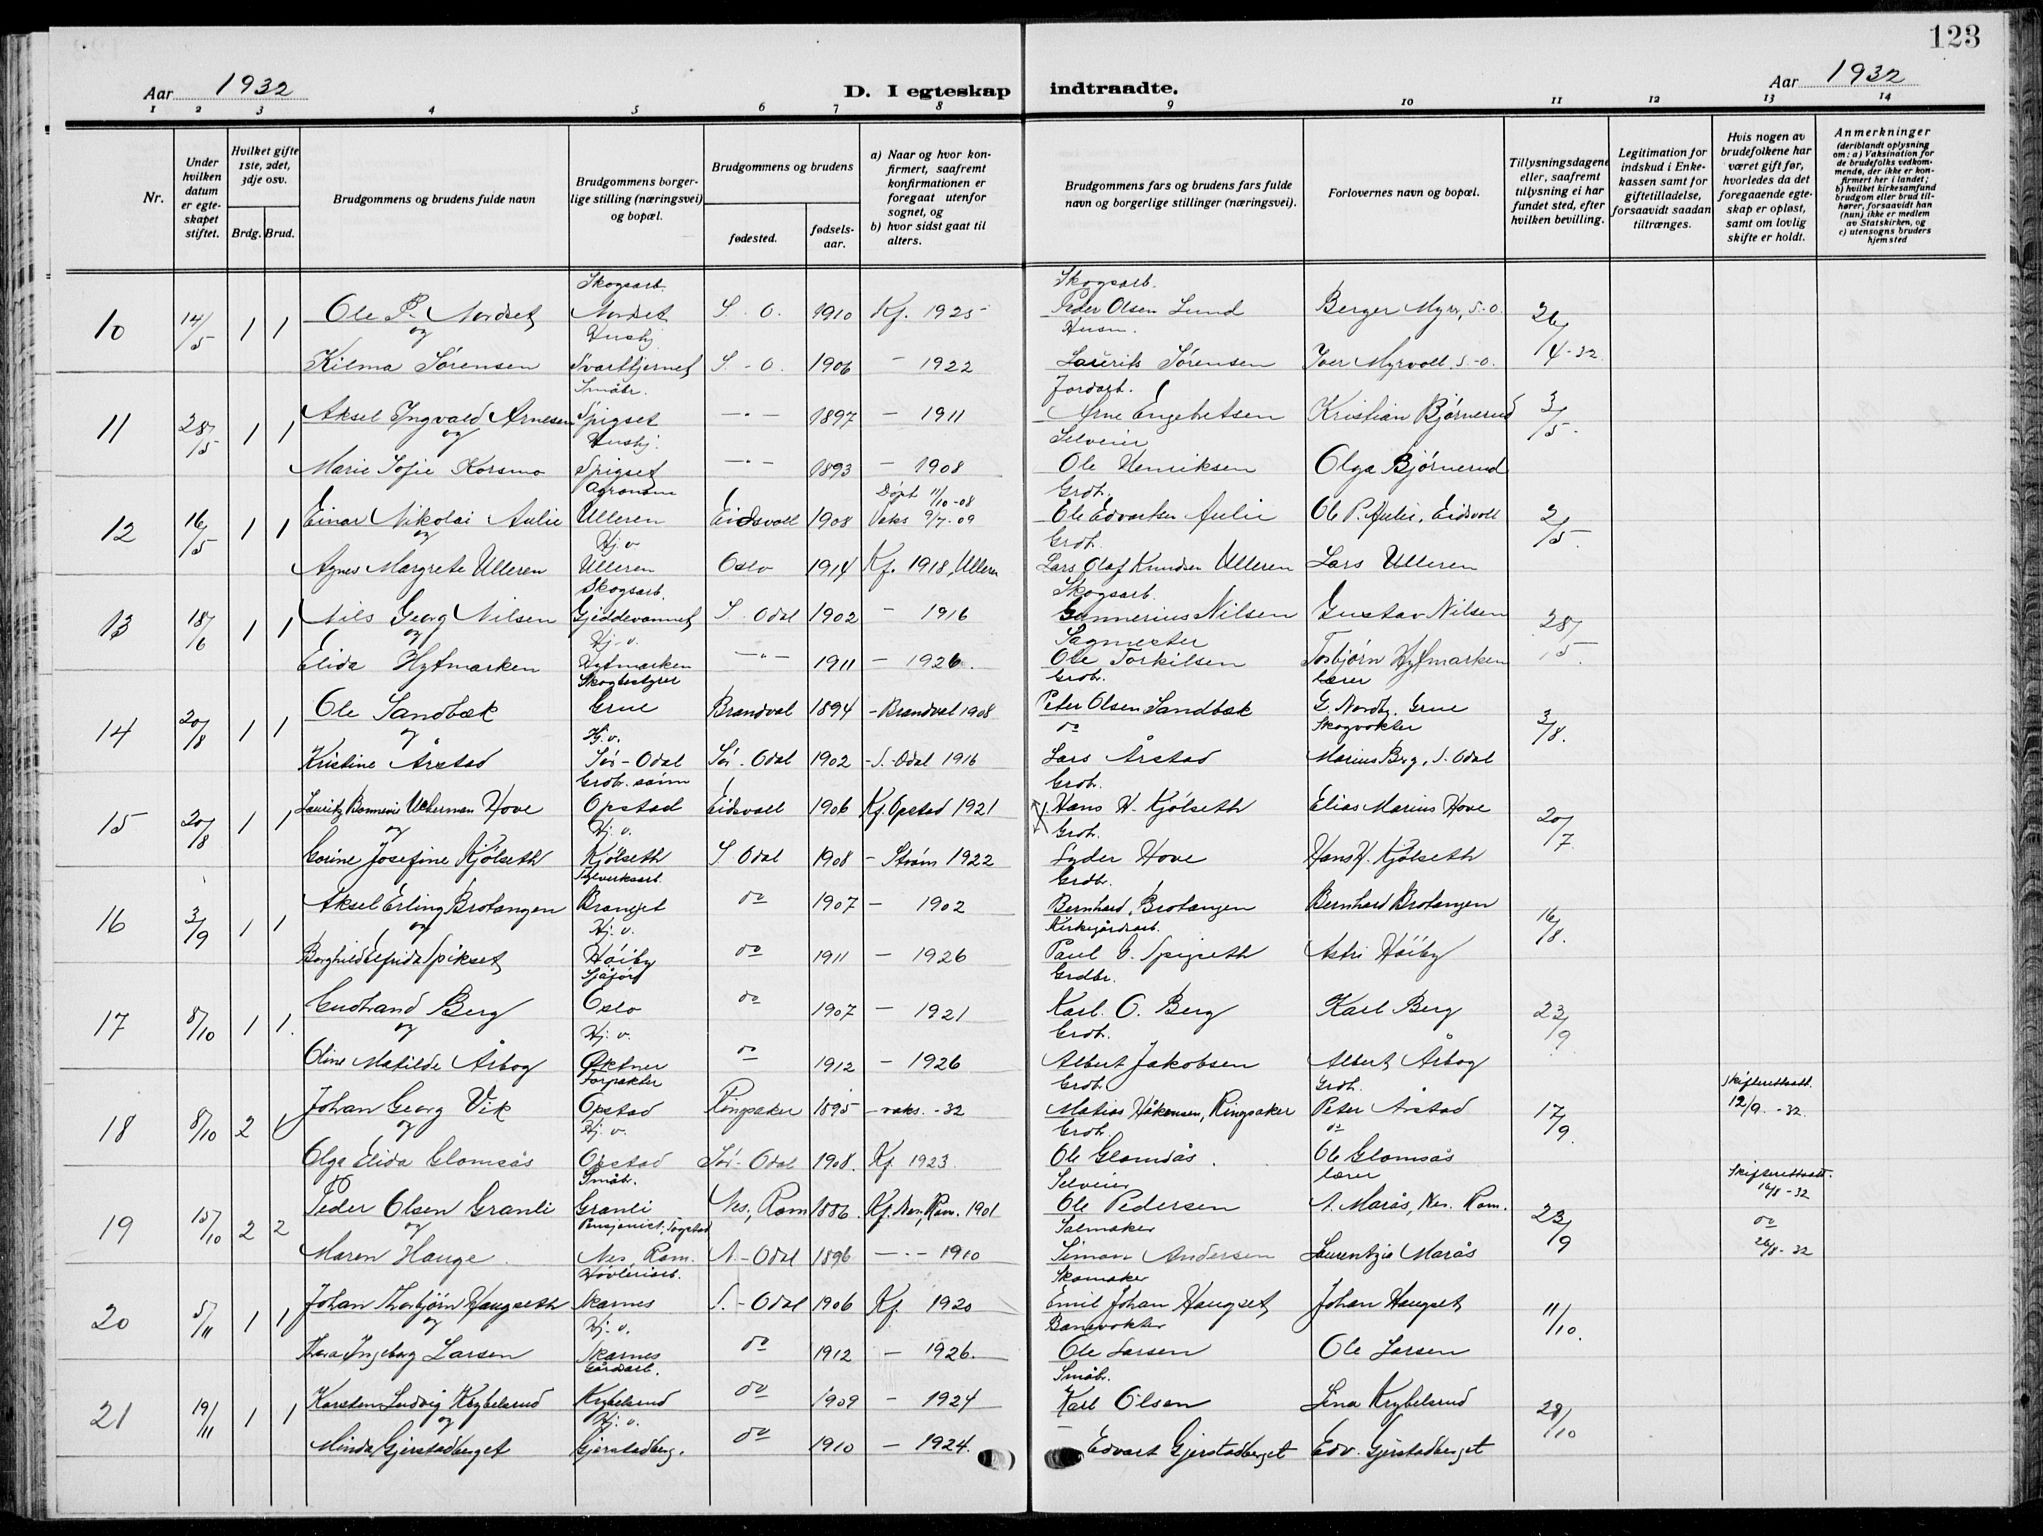 123
Aar 1932
D. I egteskap indtraadte.
Aar 1932
1 2 3 4 5 6 7 8 9 10 11 12 13 14
Nr.
Under hvilken datum er egteskapet stiftet.
Hvilket gifte 1ste, 2det, 3dje osv.
Brdg. Brud.
Brudgommens og brudens fulde navn
Brudgommens borgerlige stilling (næringsvei) og bopæl.
Brudgommens og brudens
fødested.
fødselsaar.
a) Naar og hvor konfirmert, saafremt konfirmationen er foregaat utenfor sognet, og
b) hvor sidst gaat til alters.
Brudgommens fars og brudens fars fulde navn og borgerlige stillinger (næringsvei).
Forlovernes navn og bopæl.
Tillysningsdagene eller, saafremt tillysning ei har fundet sted, efter hvilken bevilling.
Legitimation for indskud i Enkekassen samt for giftetilladelse, forsaavidt saadan tiltrænges.
Hvis nogen av brudefolkene har været gift før, hvorledes da det foregaaende egteskap er opløst, samt om lovlig skifte er holdt.
Anmerkninger (deriblandt oplysning om: a) Vaksination for de brudefolks vedkommende, der ikke er konfirmert her i landet; b) hvilket kirkesamfund brudgom eller brud tilhører, forsaavidt han (hun) ikke er medlem av Statskirken, og c) utensogns bruders hjemsted
Skogsarb. Skogsarb.
10 14/5 1 1 Ole P. Nordset Nordset S. O. 1910 Kf. 1925 Peder Olsen Lund Berger Myrv, S.O. 26/4-32
og Hushj. Husm.
Kilma Sørensen Svarttjernet S. - O. 1906 - 1922 Laurits Sørensen Iver Myrvoll, S.-O.
Småbr. Jordarb.
11 28/5 1 1 Aksel Ingvald Arnesen Spigset -"- 1897 - 1911 Arne Engebretsen Kristian Bjørnerud 3/5.
og Hushj. Selveier
Marie Sofie Korsmo Spigset -"- 1893 - 1908 Ole Henriksen Olga Bjørnerud
Agronom Døpt 11/10-08 Grdbr.
12 16/5 1 1 Einar Nikolai Julie Ulleren Eidsvoll 1908 Vaks 9/7-09 Ole Edvartsen Julie Ole P. Julie, Eidsvoll 2/5.
og Hj. v Grdb.
Agnes Margrete Ulleren Ulleren Oslo 1914 Kf. 1918, Ulleren Lars Olaf Knudsen Ulleren Lars Ulleren
Skogsarb. Skogsarb.
13 18/6 1 1 Nils Georg Nilsen Gjeddevannet S. Odal 1902 - 1916 Gunnerius Nilsen Gustav Nilsen 28/5.
og Hj. v. Sagmester
Elida Hytmarken Hytmarken -"- 1911 - 1926. Ole Torkilsen Torbjørn Hytmarken
Skogbestyrer Grdb. lærer
14 20/8 1 1 Ole Sandbæk Grue Brandval 1894 - Brandval 1908 Peter Olsen Sandbæk G. Nordb. Grue 3/8.
og Hj. v. do Skogvokter
Kristine Årstad Sør-Odal Sør-Odal 1902 - S.-Odal 1916 Lars Årstad Marius Berg, S. Odal
Grdb. sønn Grdb.
15 20/8 1 1 Lauritz Bonnevie Uckerman Hove Opstad Eidsvoll 1906 Kf. Opstad 1921 Hans H. Kjølseth Elias Marius Hove 20/7.
og Hj. v. Grdb.
Gorine Josefine Kjølseth Kjølseth S Odal 1908 - Strøm 1922 Lyder Hove Hans H. Kjølseth
Grdbr.
16 3/9 1 1 Aksel Erling Brotangen Branget do 1907 - 1902 Bernhard Brotangen Bernhard Brotangen 16/8.
og Hj. v. Kirkegårdsarb.
Borghild Elfrida Spikset Høiby do 1911 - 1926 Paul O. Spigseth Astri Høiby
Sjåfør Grdbr.
17 8/10 1 1. Gudbrand Berg Oslo do 1907 - 1921 Karl. O. Berg Karl Berg 23/9
og Hj. v. Grdb.
Oline Matilde Årbog Øktner do 1912 - 1926 Albert Jakobsen Albert Årbog
Forpakter Grdb. Grdb. skifteattest.
18 8/10 2 1 Johan Georg Vik Opstad Ringsaker 1895 - vaks. -32 Matias Håkensen, Ringsaker Peter Årstad 17/9. 12/9. -32.
og Hj. v. Grdb. do
Olga Elida Glomsås Opstad Sør-Odal 1908. Kf 1923 Ole Glomsås. Ole Glomsås
Småbr. Selveier lærer Skifteattest.
19 15/10 2 2 Peder Olsen Granli Granli Nes, Rom 1886. Kf. Nes, Rom. 1901 Ole Pedersen A. Marås, Nes. Rom. 23/9 16/8-32
og Salmaker do
Maren Hauge Nes, Rom. N-Odal 1896 -"- 1910 Simon Andersen Laurentzie Marås 26/8-32
Høvleriarb. Skomaker
20 5/11 1 1 Johan Thorbjørn Haugseth Skarnes S.-Odal 1906 Kf. 1920 Emil Johan Haugset Johan Haugset 11/10.
og Hj. v. Banevokter
Thora Ingeborg Larsen Skarnes do 1912 - 1926. Ole Larsen Ole Larsen
Gårdsarb. Småbr.
21 19/11 1 1 Karsten Ludvig Krybelsrud Krybelsrud do 1909 - 1924 Karl Olsen Lina Krybelsrud 28/10
og Hj. v. -
Minda Gjerstadberget Gjerstadberg. do 1910 - 1924. Edvart Gjerstadberget Edv. Gjerstadberget